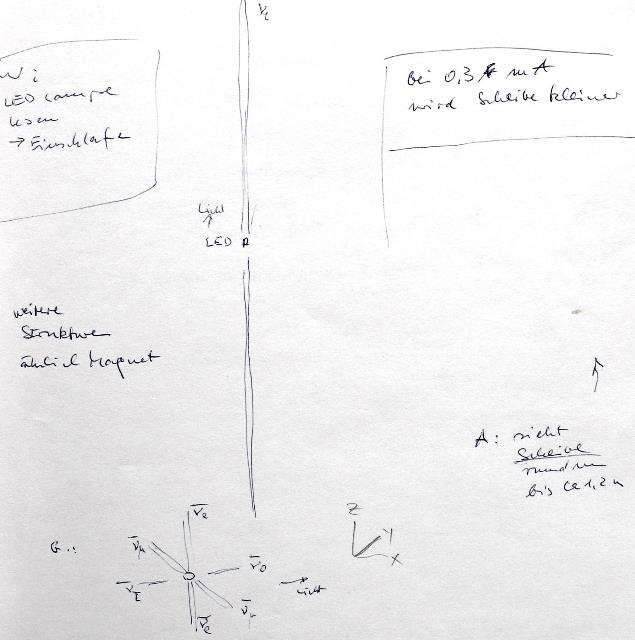 ν
W:
LED Lampe
lesen
→ Einschlafe
Bei 0,3 mA
wird Scheibe kleiner
Licht
LED
weitere
Strukturen
ähnlich Magnet
A: sieht
Scheibe
rundum
bis ca 1,2 m
G.:
Z
Y
X
Licht